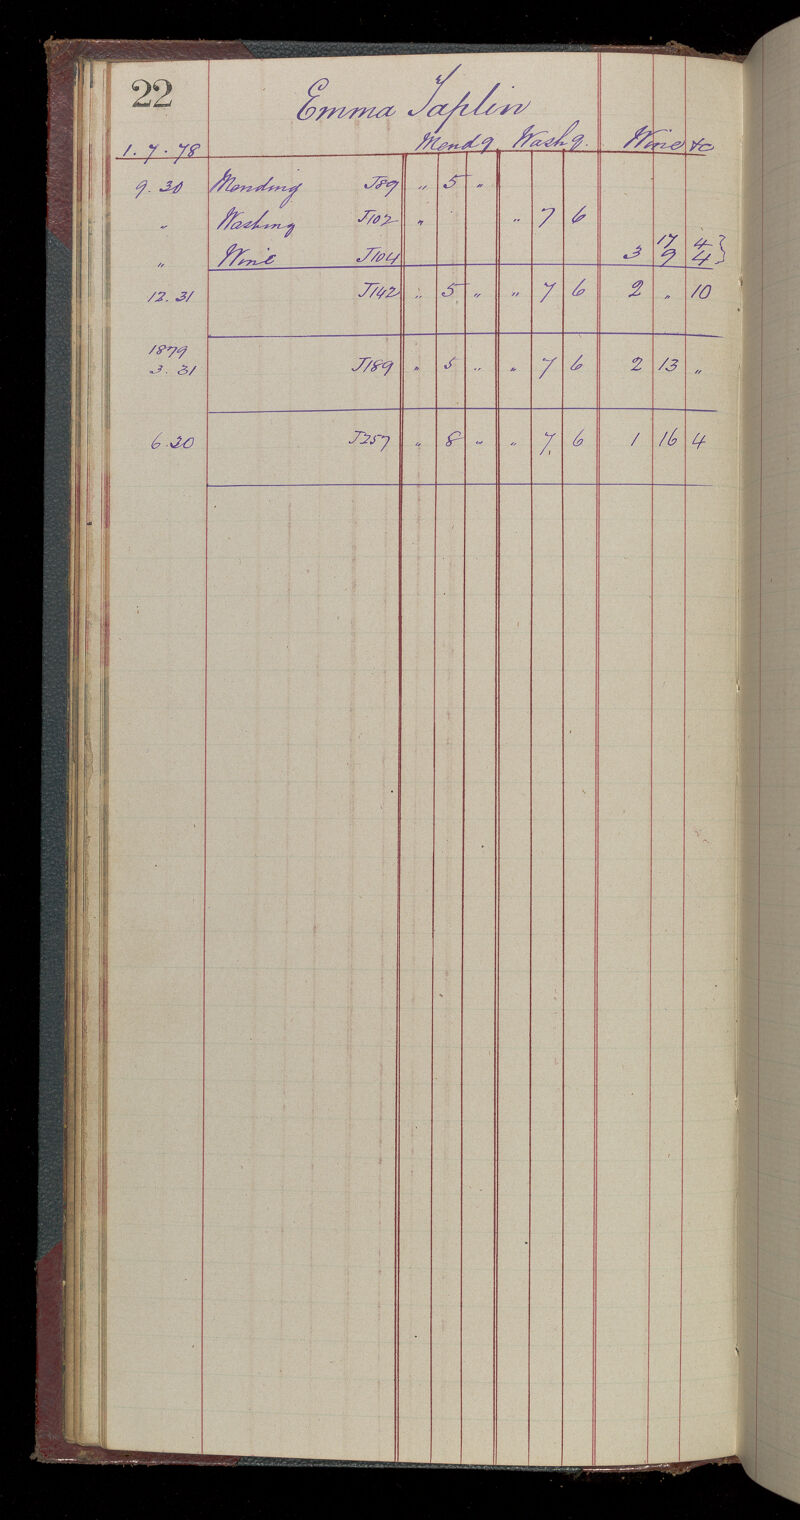 22
Emma Taplin
1.7.78 Mendg Washg. Wine &c
9.30 Mending J89 " 5 "
" Washing J102 " " 7 6
17 4
" Wine J104 3 9 4 }
12.31 J142 " 5 " " 7 6 2 " 10
1879
3.31 J189 " 5 " " 7 6 2 13 "
6.30 J257 " 8 " " 7 6 1 16 4